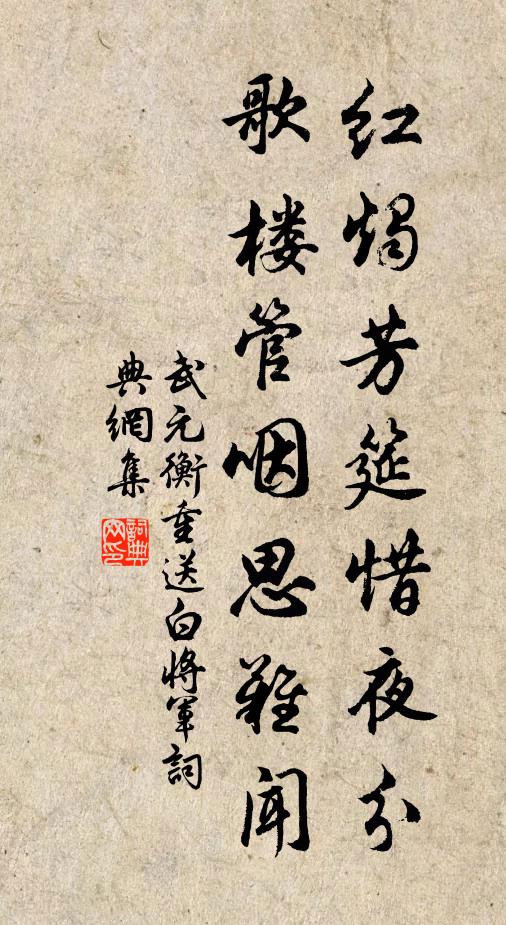 红烛芳筵惜夜分
歌楼管咽思难闻
武元衡重送白将军詞
典網集
詞典网印